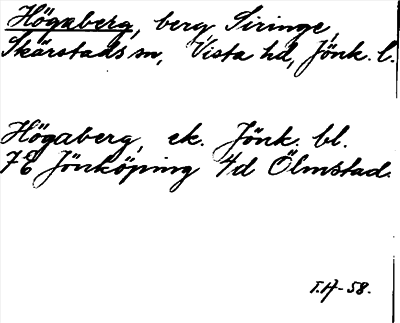 Högaberg, berg Siringe,
Skärstads sn, Vista hd, Jönk. l.
Högaberg, ek. Jönk. bl.
7E Jönköping 4d Ölmstad.
T.H-58.